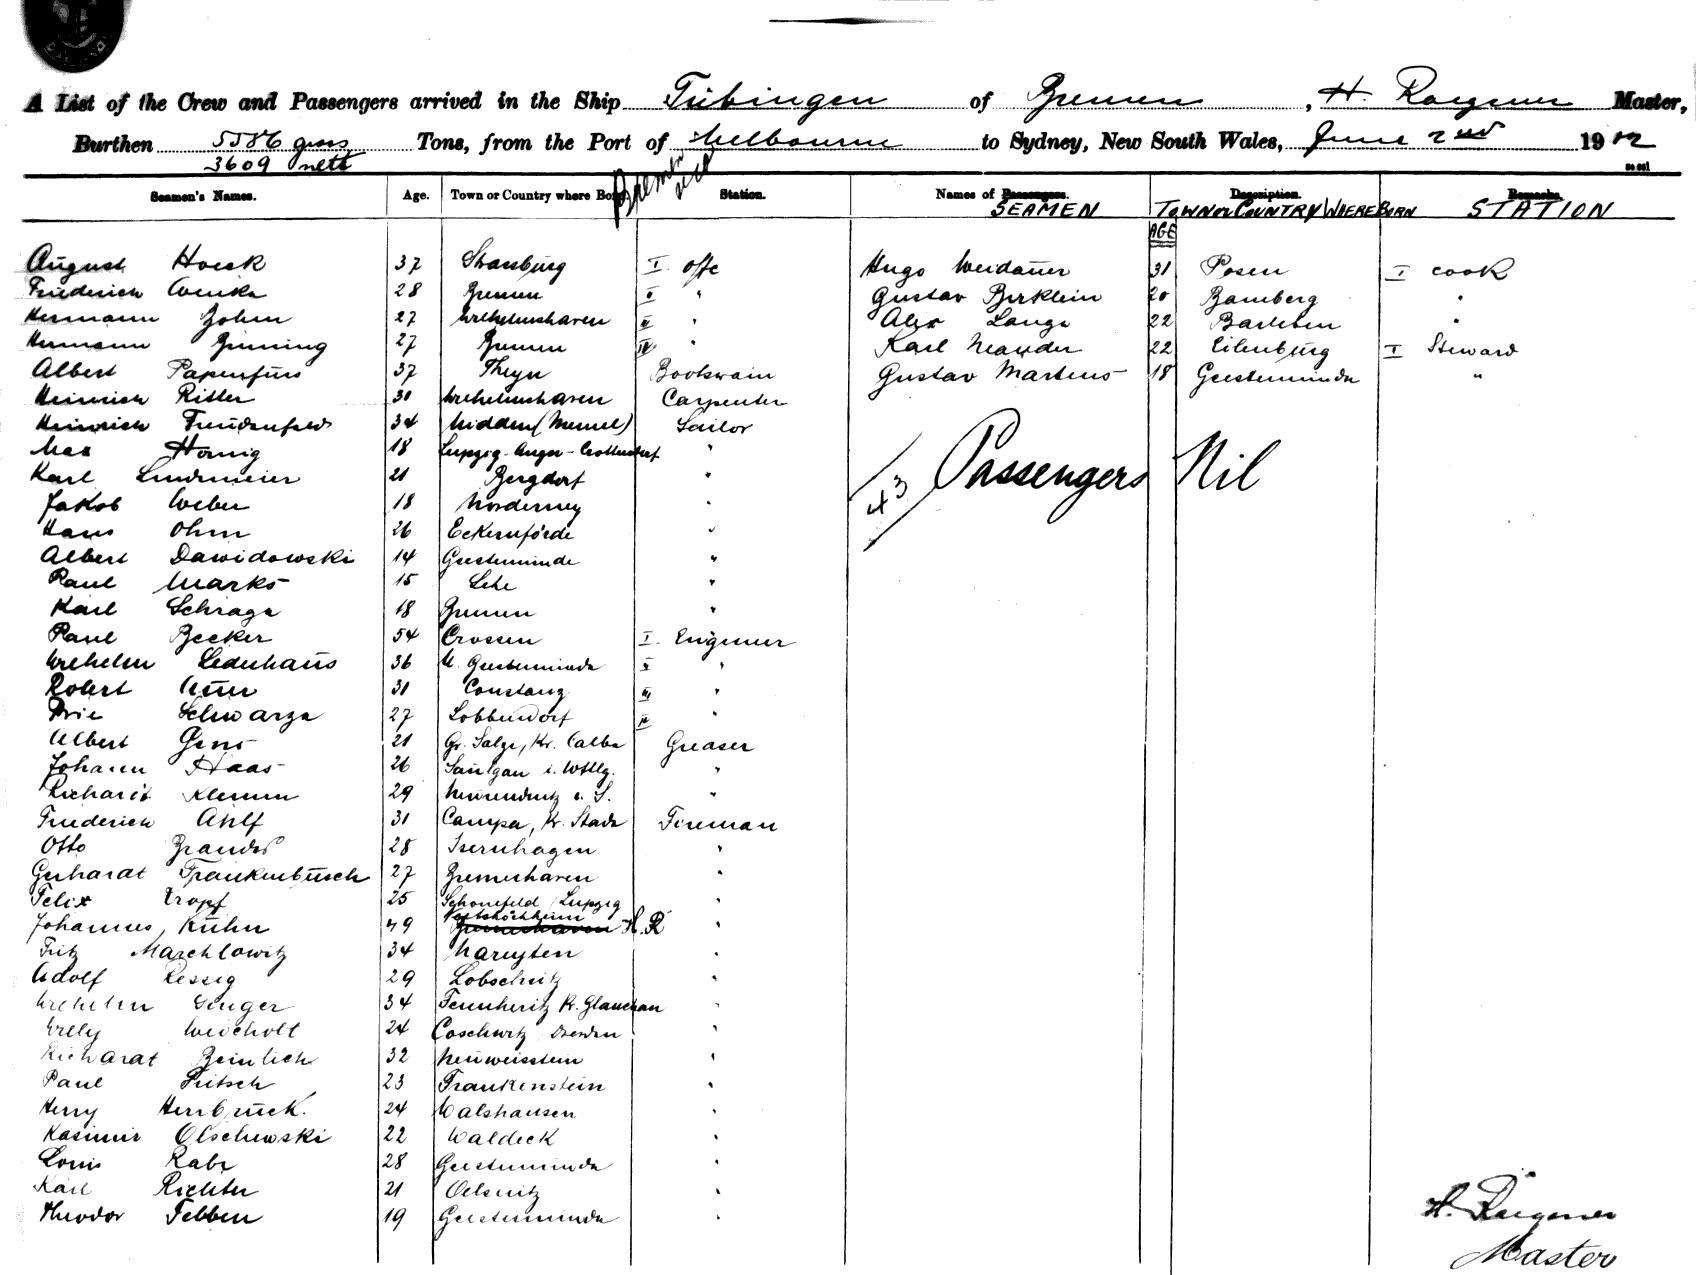 A List of the Crew and Passengers arrived in the Ship Tübingen of Bremen, H. Raegener Master,
Burthen 5586 gross Tons, from the Port of Melbourne to Sydney, New South Wales, June 2nd 1912
3609 nett
Bremen via
Seamen's Names. Age. Town or Country where Born. Station. Names of Passengers. Description. Remarks.
SEAMEN TOWN OR COUNTRY WHERE BORN STATION
AGE
August Hoesk 37 Strassburg I. offc Hugo Weidauer 31 Posen I cook
Friederich Wenke 28 Bremen II " Gustav Birklein 20 Bamberg "
Hermann Bohm 27 Wilhelmshaven III " Alex Lange 22 Barleben "
Hermann Gruning 27 Bremen IV " Karl Neander 22 Eilenburg I Steward
Albert Papenfuss 37 Theyn Bootswain Gustav Martens 18 Geestemünde "
Heinrich Ritter 30 Wilhelmshaven Carpenter
Heinrich Freudenfeld 34 Nidden (Memel) Sailor
Max Hornig 18 Leipzig-Anger-Crottendorf "
Karl Lindmeier 21 Bergdorf "
Passengers Nil
43
Jakob Weber 18 Norderney "
Hans Ohm 26 Eckernförde "
Albert Dawidowski 14 Geestemünde "
Paul Marks 15 Lehe "
Karl Schrage 18 Bremen "
Paul Becker 54 Crossen I. Engineer
Wilhelm Lederhaus 36 Geestemünde II "
Robert 31 Constanz III "
Schwarze 27 Lobbendorf IV "
Albert Gens 21 Gr. Salze, Kr. Calbe Greaser
Johann Haas 26 Saulgau i. Wttbg. "
Richard Klemm 29 i. S. "
Friederich Ahlf 31 Campe, Kr. Stade Fireman
Otto Brandes 28 Isernhagen "
Gerhardt Frankenbusch 27 Bremerhaven "
Felix Kropf 25 Schönefeld / Leipzig "
Veitshöchheim
Johannes Kühn 49 Bremerhaven H.R "
Fritz Marchlowitz 34 Nareyten "
Adolf Ressig 29 Lobschütz "
Wilhelm Singer 34 Tennheritz Kr. Glauchau "
Willy Weicholt 24 Coschwitz Dresden "
Richardt Beinlich 32 Neuweisstein "
Paul Fritsch 23 Frankenstein "
Herry Herrbruck. 24 Walshausen "
Kasimir Olschewski 22 Waldeck "
Louis Rabe 28 Geestemünde "
Karl Richter 21 Oelsnitz "
Theodor Tebben 19 Geestemünde "
H. Raegener
Master